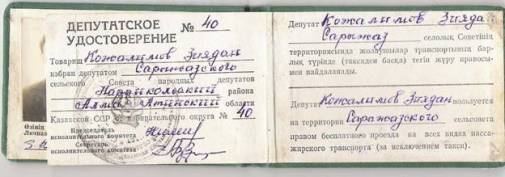 ДЕПУТАТСКОЕ № 40
УДОСТОВЕРЕНИЕ
Товарищ Кожалимов Зиядан
избран депутатом Саражазского
сельского Совета народных депутатов
Нарынкольского района
Алма-Атинской области
Казахской ССР избирательного округа № 40
Председатель
исполнительного комитета
Секретарь
исполнительного комитета
Депутат Кожалимов Зиядан
Сарыжаз селолық Советінің
территориясында жолаушылар транспортының бар-
лық түрінде (таксиден басқа) тегін жүру правосы-
мен пайдаланады.
Депутат Кожалимов Зиядан пользуется
на территории Саражазского сельсовета
правом бесплатного проезда на всех видах пасса-
жирского транспорта (за исключением такси).